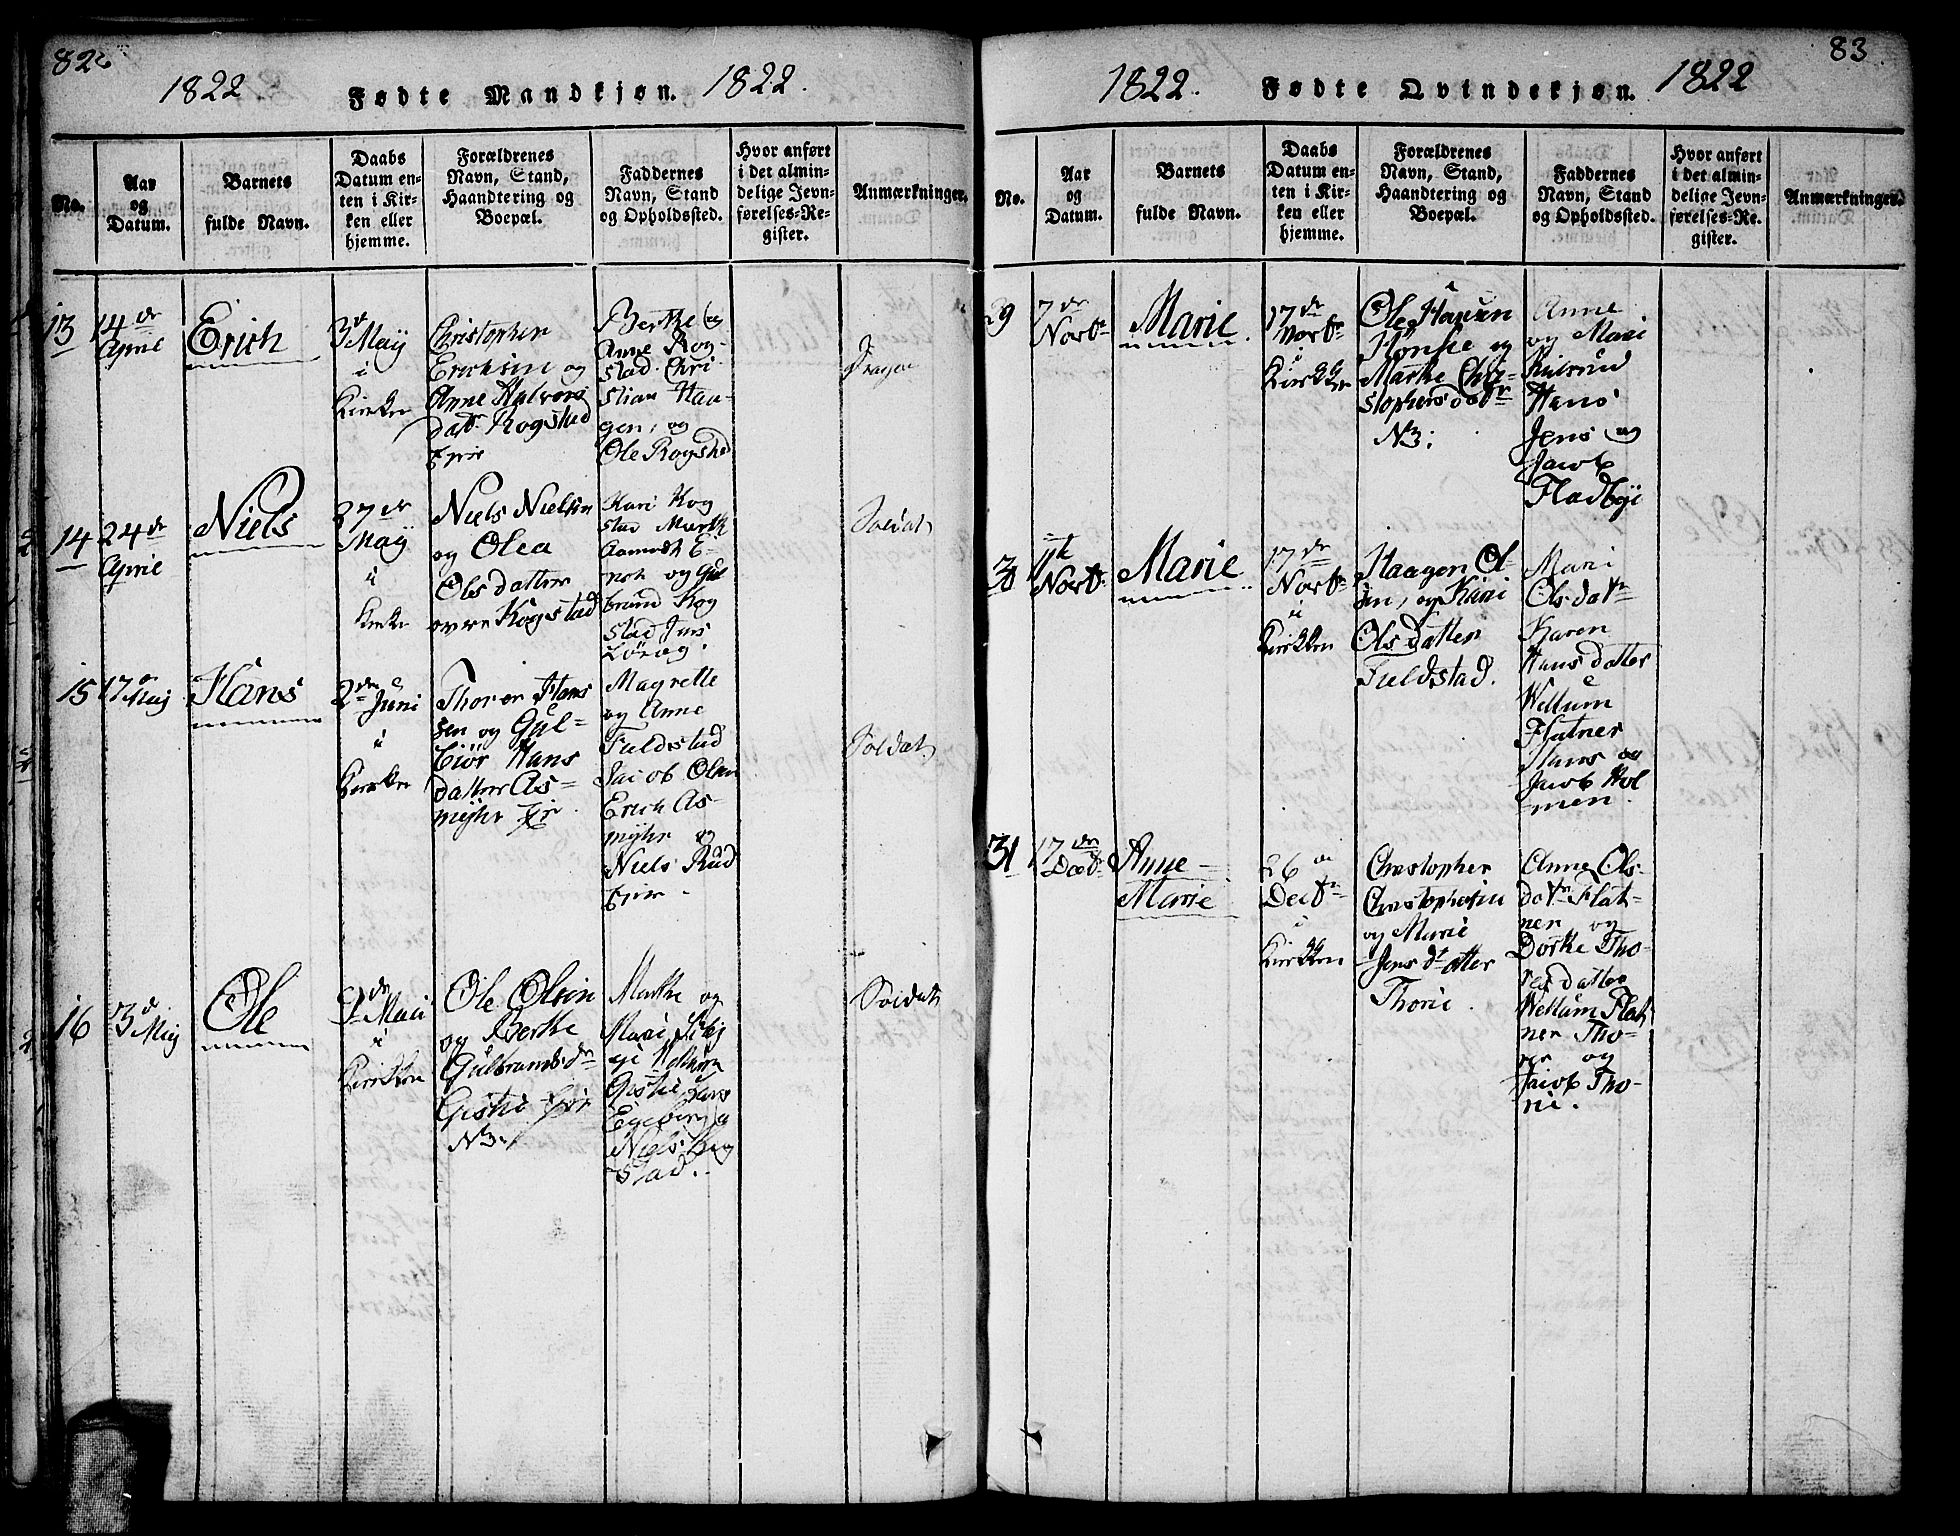 82
1822
Fødte Mandkjøn.
1822.
No.
Aar
og
Datum.
Barnets
fulde Navn.
Daabs
Datum en-
ten i Kir-
ken eller
hjemme.
Forældrenes
Navn, Stand,
Haandtering og
Boepæl.
Faddernes
Navn, Stand
og Opholdssted.
Hvor anført
i det almin-
delige Jevn-
førelses-Re-
gister.
Anmærkninger.
13
14de
Erich
3d
Maÿ
i
Kirken
Christopher
Erichsen og
Anne Halvors
datr Rogstad
Berthe og
Anne Rog-
stad Chri-
stian Haa-
gen, og
Ole Rogstad
14
24de
Niels
27de
Maÿ
i
Kirke
Niels Nielsen
og Olea
Olsdatter
Rogstad
Kari Rog
stad
og Gul
brand Rog
stad Jens
Soldat
15
17
Maij
Hans
2den
Juni
i
Kirken
Thorer Hans
sen og Gul-
biør Hans
datter As-
mÿhr
Magrette
og Anne
Fuldstad
Jacob Olsen
Erich As-
mÿhr og
Niels Rud
Soldat
16
13d
Maij
Ole
Maii
i
Kirkken
Ole Olsen
og Berthe
Gulbransdr
Marthe og
Mari
Niels Rog
stad.
Soldat
83
1822.
Fødte Qvindekjøn.
1822
No.
Aar
og
Datum.
Barnets
fulde Navn.
Daabs
Datum en-
ten i Kir-
ken eller
hjemme.
Forældrenes
Navn, Stand,
Haandtering og
Boepæl.
Faddernes
Navn, Stand
og Opholdssted.
Hvor anført
i det almin-
delige Jevn-
førelses-Re-
gister.
Anmærkninger.
29
7de
Marie
17de
i
Ole Hansen
og
Marthe Chri-
stophersdatr
Anne
og Mari
Hans
Jens og
Jacob
Fladbÿe
30
11te
Marie
17de
i
Kirkken
Haagen Ol-
sen, og Kari
Olsdatter
Fuldstad.
Mari
Olsdatr
Karen
Hansdatter
Wellum
Flatner
Hans og
Jacob Hol
men.
31
17de
Anne
Marie
26de
i
Kirkken
Christopher
Christophersen
og Marie
Jensdatter
Thorie.
Anne Ols-
datr Flat-
ner og
Dorthe Tho-
resdatter
Wellum Flat
ner Tho-
rer og
Jacob Tho-
rie.